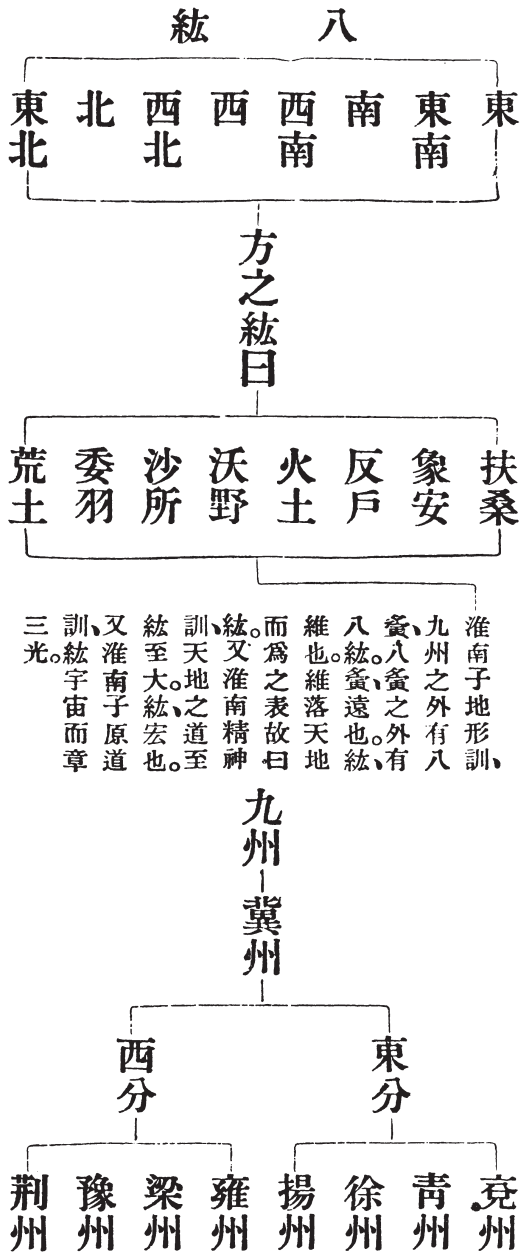 八紘
東
東南
南
西南
西
西北
北
東北
方之紘曰
扶桑
象安
反戶
火土
沃野
沙所
委羽
荒土
淮南子地形訓、
九州之外有八
夤、八夤之外有
八紘。夤、遠也。紘、
維也。維落天地
而爲之表故曰
紘。又淮南精神
訓、天地之道至
紘至大。紘、宏也。
又淮南子原道
訓、紘宇宙而章
三光。
九州
冀州
東分
西分
兗州
青州
徐州
揚州
雍州
梁州
豫州
荆州